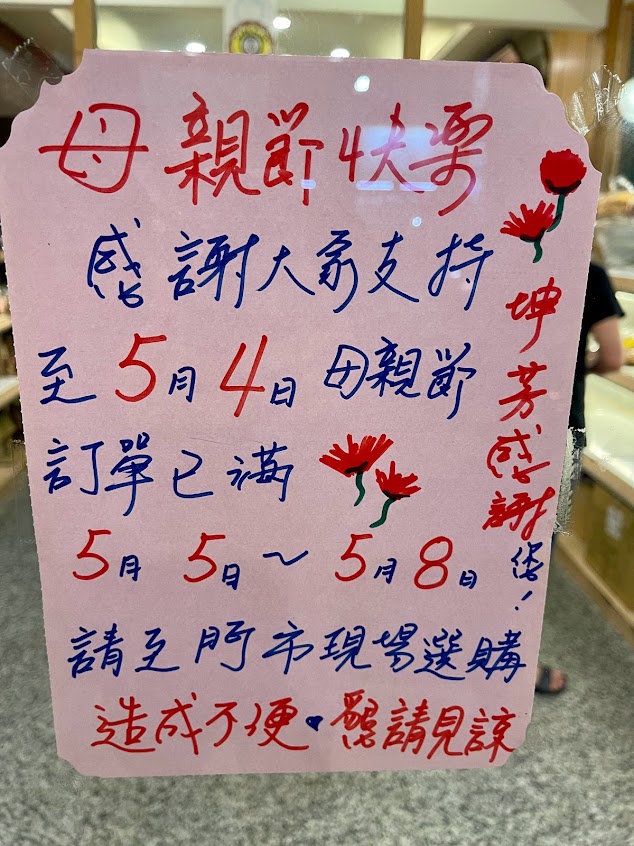 母親節快樂
感謝大家支持
至5月4日母親節
訂單已滿
5月5日~5月8日
請至門市現場選購
造成不便、懇請見諒
坤芳感謝您!